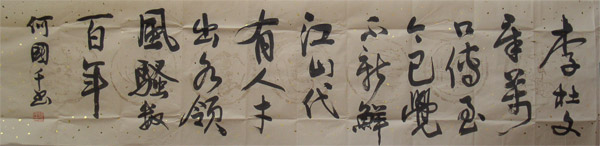 李杜文
章萬
口傳至
今已覺
不新鮮
江山代
有人才
出各領
風騷数
百年
何國千书